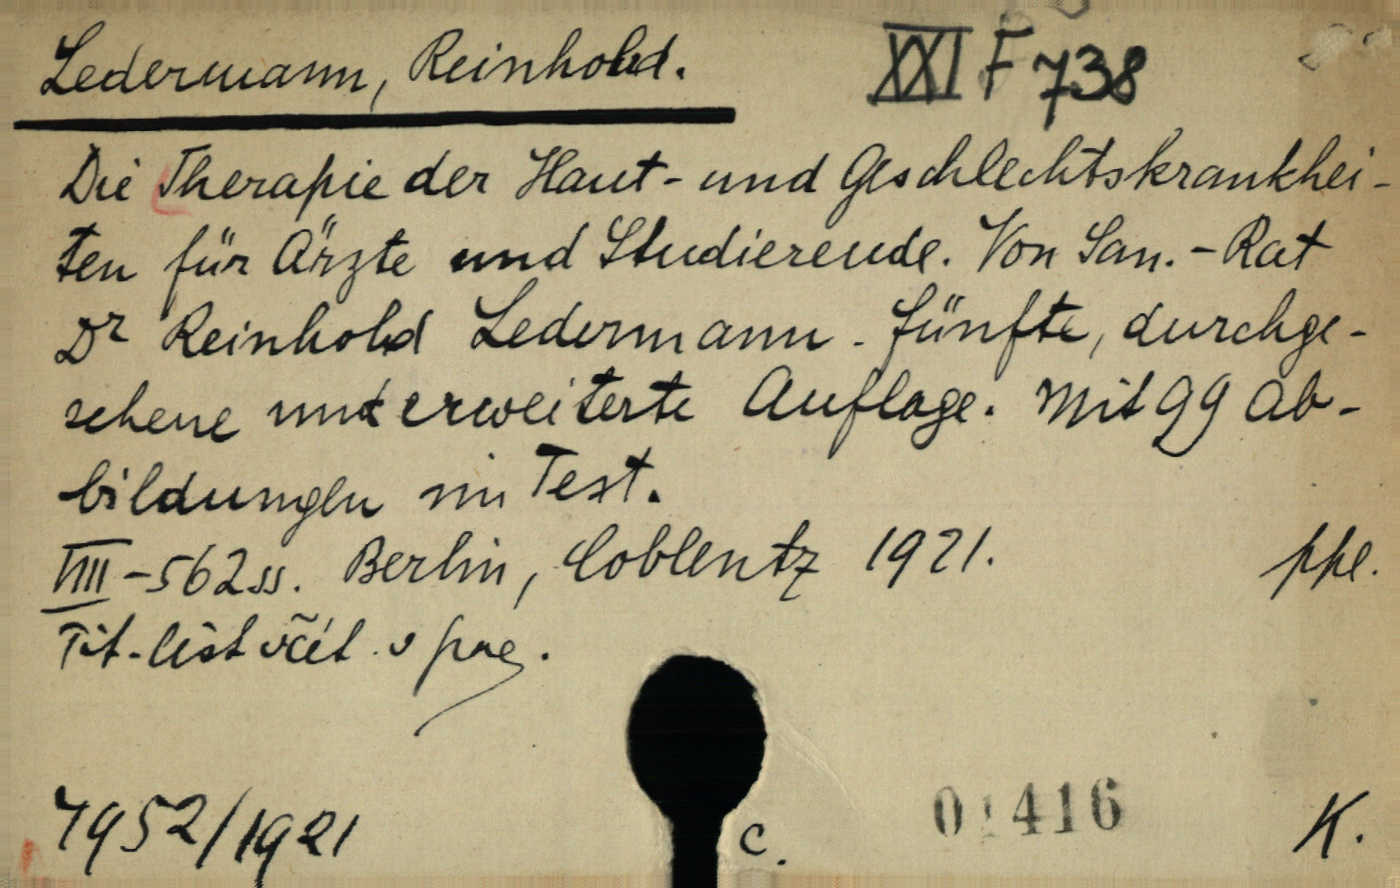 Ledermann, Reinhold.
XXI F 738
Die Therapie der Haut- und Geschlechtskrankhei-
ten für Ärzte und Studierende. Von San.-Rat
Dr Reinhold Ledermann. Fünfte, durchge-
sehene und erweiterte Auflage. Mit 99 Ab-
bildungen im Text.
VIII-562 ss. Berlin, Coblentz 1921. ppl.
Tit-list včít. v pag.
7952/1921
C.
01416
K.